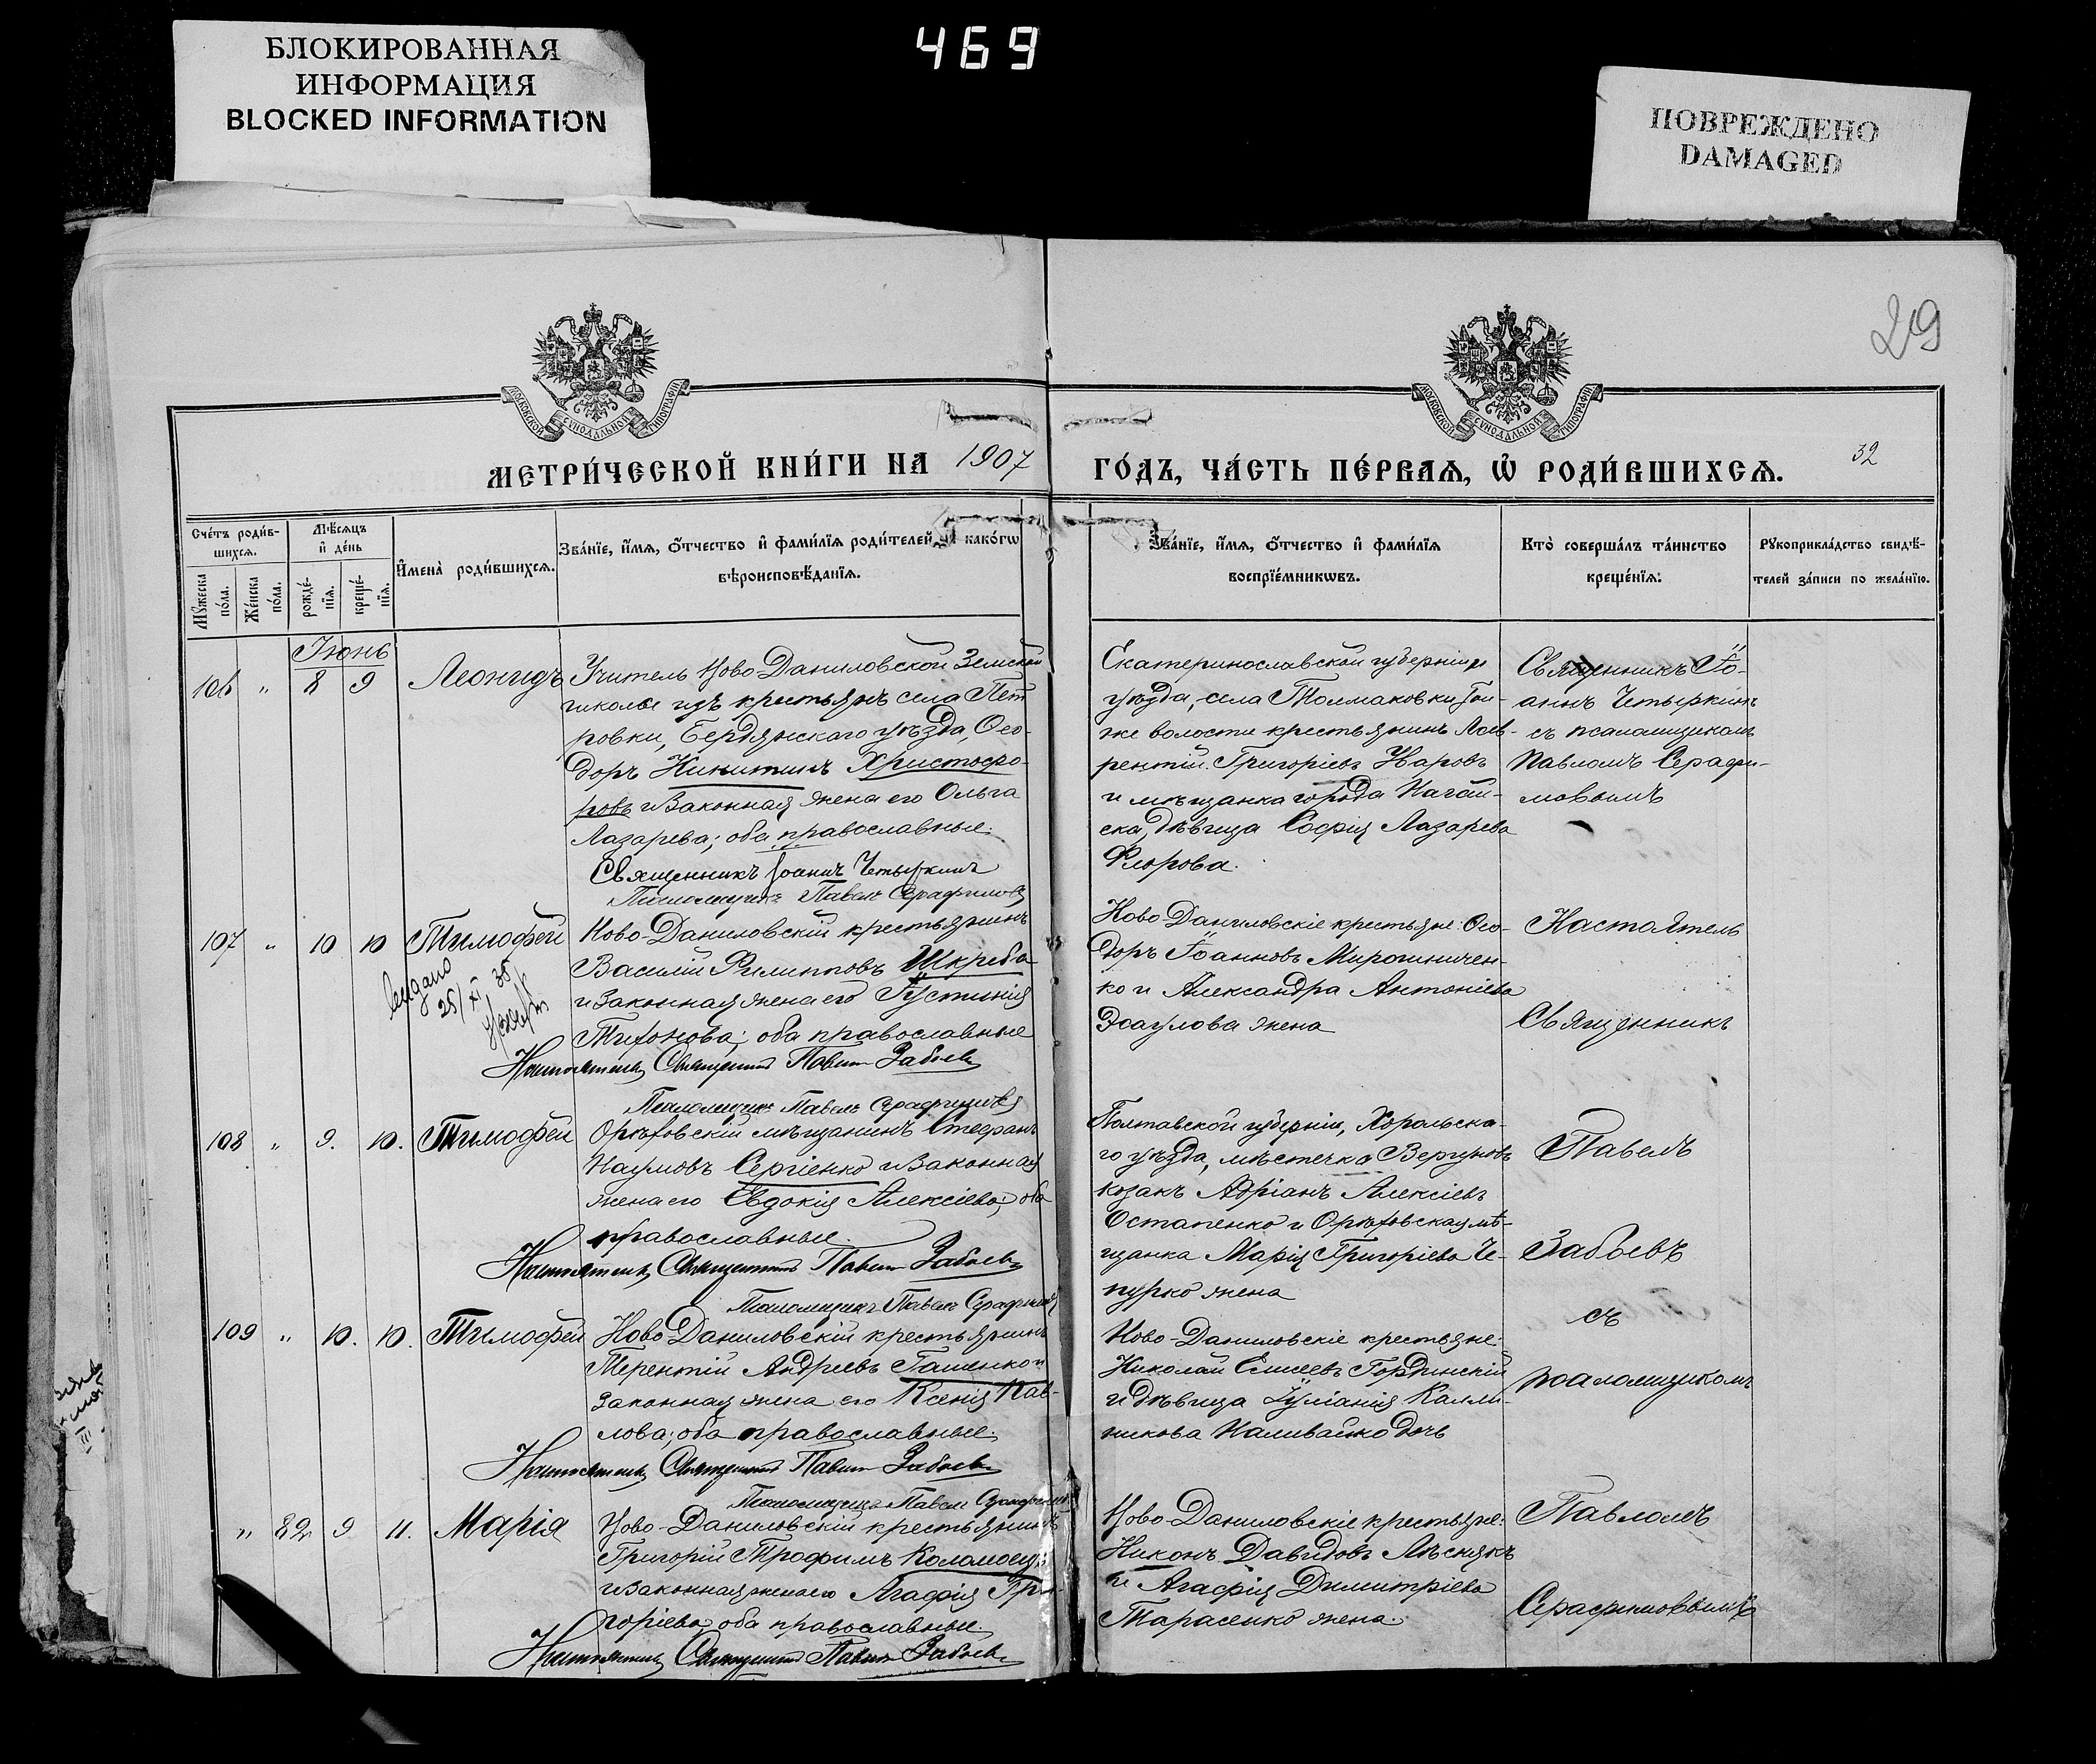 БЛОКИРОВАННАЯ
ИНФОРМАЦИЯ
BLOCKED INFORMATION
469
ПОВРЕЖДЕНО
DAMAGED
29
МОСКОВСКОЙ СѴНОДАЛЬНОЙ ТИПОГРАФІИ
МОСКОВСКОЙ СѴНОДАЛЬНОЙ ТИПОГРАФІИ
МЕТРИ́ЧЕСКОЙ КНИ́ГИ НА 1907
ГО́ДЪ, ЧА́СТЬ ПЕ́РВАѦ, Ѿ РОДИ́ВШИХСѦ.
32
Сче́тъ роди́в-
шихсѧ.
Мꙋ́жеска
по́ла.
Же́нска
по́ла.
Мѣ́сѧцъ
и҆ де́нь
рожде́-
нїѧ.
креще́-
нїѧ.
И҆мена̀ роди́вшихсѧ.
Зва́нїе, и҆́мѧ, ѻ҆́тчество и҆ фами́лїѧ роди́телей, и҆ како́гѡ
вѣроисповѣ́данїѧ.
Зва́нїе, и҆́мѧ, ѻ҆́тчество и҆ фами́лїѧ
воспрїе́мникѡвъ.
Кто̀ соверша́лъ та́инство
креще́нїѧ.
Рꙋкоприкла́дство свидѣ́-
телей за́писи по жела́нїю.
Іюнь
106 " 8 9 Леонидъ
Учитель Ново Даниловской Земской
школы изъ крестьянъ села Пет
ровки, Бердянскаго уѣзда, Ѳео-
доръ Никитинъ Христофо-
ровъ и законная жена его Ольга
Лазарева; оба православные.
Священникъ Іоаннъ Четыркинъ
Псаломщикъ Павелъ Серафимовъ
Екатеринославской губерніи и
уѣзда, села Томаковки той-
же волости крестьянинъ Лав-
рентій Григоріевъ Уваровъ
и мѣщанка города Ногай-
ска, дѣвица Софія Лазарева
Флорова.
Священникъ Іо-
аннъ Четыркинъ
съ псаломщикомъ
Павломъ Серафи-
мовымъ
107 " 10 10 Тимофей
25/XI 38
Ново-Даниловскій крестьянинъ
Василій Филипповъ Шкреба
и законная жена его Іустинія
Тихонова; оба православные
Настоятель Священникъ Павелъ Забаевъ
Псаломщикъ Павелъ Серафимовъ
Ново-Даниловскіе крестьяне: Ѳео-
доръ Іоанновъ Мирошничен-
ко и Александра Антоніева
Эсаулова жена
Настоятель
Священникъ
108 " 9. 10. Тимофей
Орѣховскій мѣщанинъ Стефанъ
Наумовъ Сергіенко и законная
жена его Евдокія Алексіева; оба
православные.
Настоятель Священникъ Павелъ Забаевъ
Псаломщикъ Павелъ Серафимовъ
Полтавской губерніи, Хорольска-
го уѣзда, мѣстечка Вергуновъ
козакъ Адріанъ Алексіевъ
Остапенко и Орѣховская мѣ-
щанка Марія Григоріева Че-
пурко жена
Павелъ
Забаевъ
съ
109 " 10. 10. Тимофей
Ново Даниловскій крестьянинъ
Терентій Андреевъ Гашенко и
законная жена его Ксенія Пав-
лова; оба православные.
Настоятель Священникъ Павелъ Забаевъ
Псаломщикъ Павелъ Серафимовъ
Ново-Даниловскіе крестьяне:
Николай Елисеевъ Гординскій
и дѣвица Іуліанія Калли-
никова Наливайко дочь
псаломщикомъ
" 82 9 11. Марія
Ново-Даниловскій крестьянинъ
Григорій Трофимъ Коломоецъ
и законная жена его Агафія Гри-
горіева; оба православные.
Настоятель Священникъ Павелъ Забаевъ
Ново-Даниловскіе крестьяне:
Никонъ Давидовъ Лѣснякъ
и Агафія Димитріева
Тарасенко жена.
Павломъ
Серафимовымъ